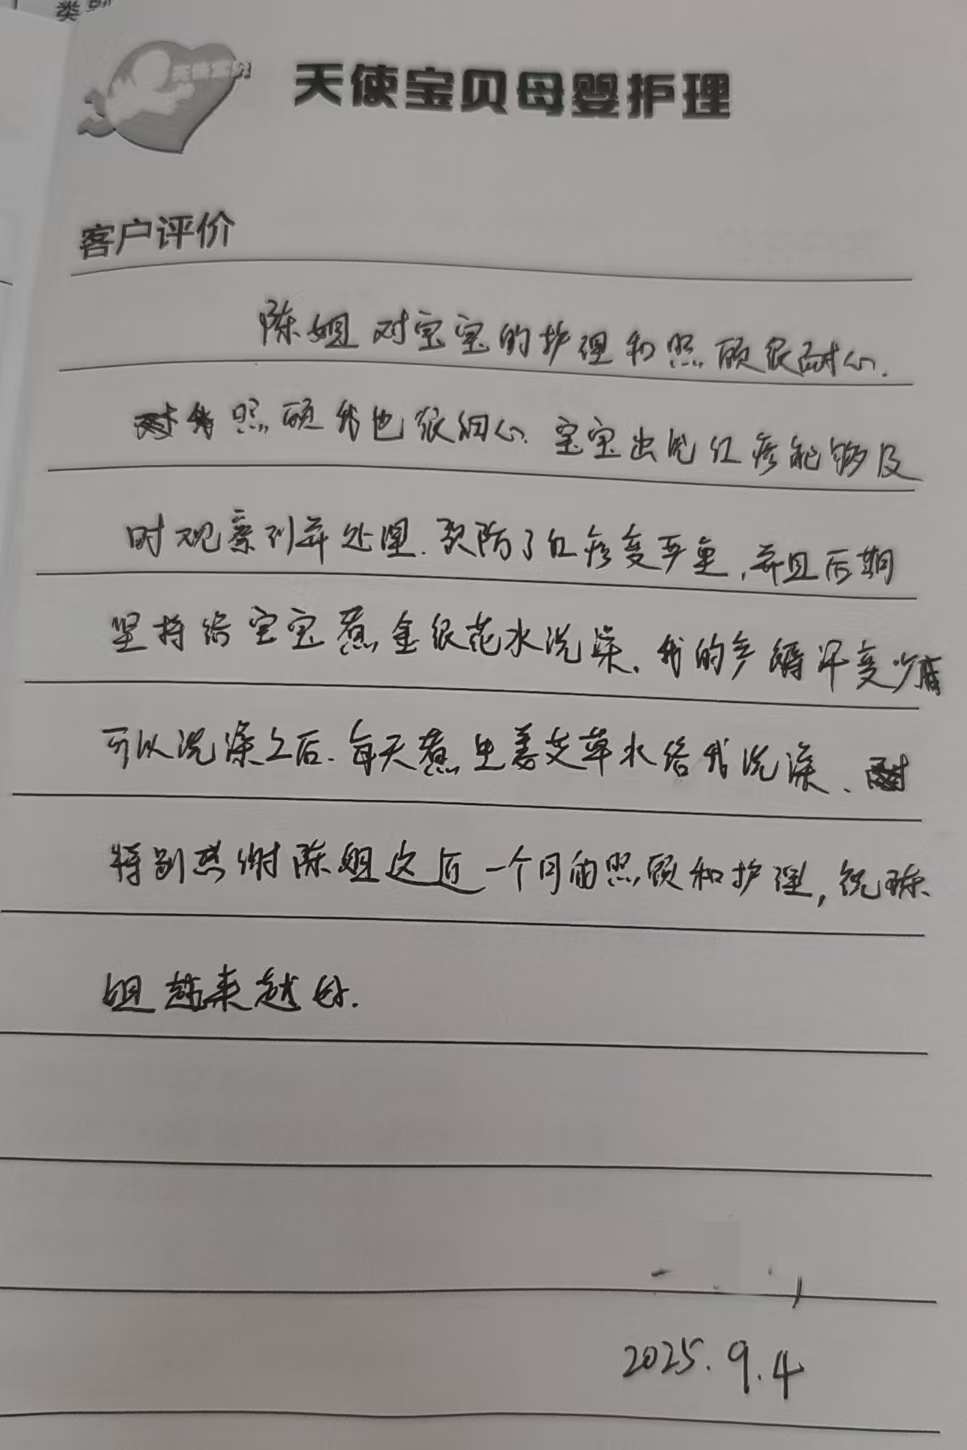 类别
天使宝贝
天使宝贝母婴护理
客户评价
陈姐对宝宝的护理和照顾很耐心.
照顾我也很细心.宝宝出现红疹能够及
时观察到并处理.预防了红疹变严重,并且后期
坚持给宝宝煮金银花水洗澡.我的产褥汗变少
可以洗澡之后.每天煮生姜艾草水给我洗澡、
特别感谢陈姐这近一个月的照顾和护理,祝陈
姐越来越好.
2025.9.4